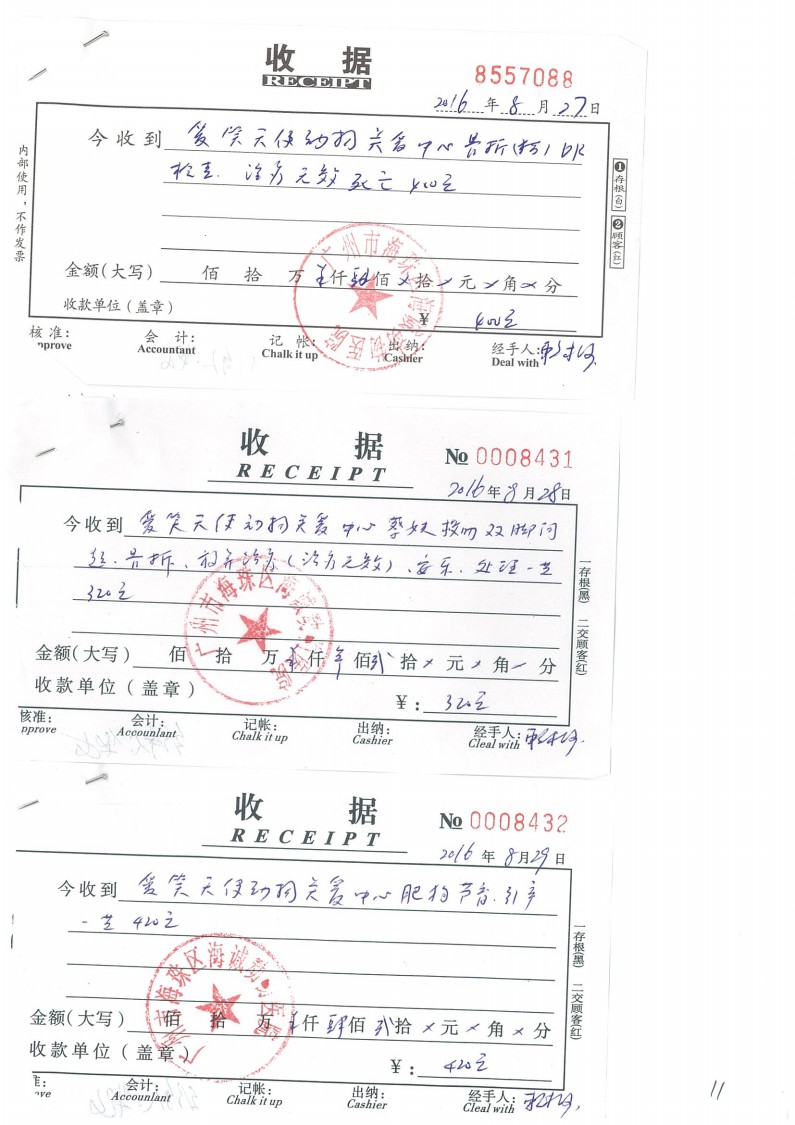 收 据
RECEIPT
8557088
2016 年 8 月 27 日
今收到 爱笑天使动物关爱中心 骨折 DR
检查. 治疗无效 死亡 400元
内部使用，不作发票
❶存根(白) ❷顾客(红)
金额(大写) 佰 拾 万 仟 肆佰 拾 元 角 分
收款单位(盖章) ¥ 400元
广州市海珠
医院
核准: 会 计: 记 帐: 出 纳: 经手人:
pprove Accountant Chalk it up Cashier Deal with
收 据
RECEIPT
No 0008431
2016 年 8 月 28 日
今收到 爱笑天使动物关爱中心 双脚
骨折、放弃治疗(治疗无效)、安乐. 处理一共
320元
一存根(黑) 二交顾客(红)
广州市海珠区海诚
医院
金额(大写) 佰 拾 万 仟 佰 贰拾 元 角 分
收款单位(盖章) ¥: 320元
核准: 会计: 记帐: 出纳: 经手人:
pprove Accountant Chalk it up Cashier Cleal with
收 据
RECEIPT
No 0008432
2016 年 8 月 29 日
今收到 爱笑天使动物关爱中心 肥狗 引产
一共 420元
一存根(黑) 二交顾客(红)
广州市海珠区海诚
医院
金额(大写) 佰 拾 万 仟 肆佰 贰拾 元 角 分
收款单位(盖章) ¥: 420元
准: 会计: 记帐: 出纳: 经手人:
ove Accountant Chalk it up Cashier Cleal with
11